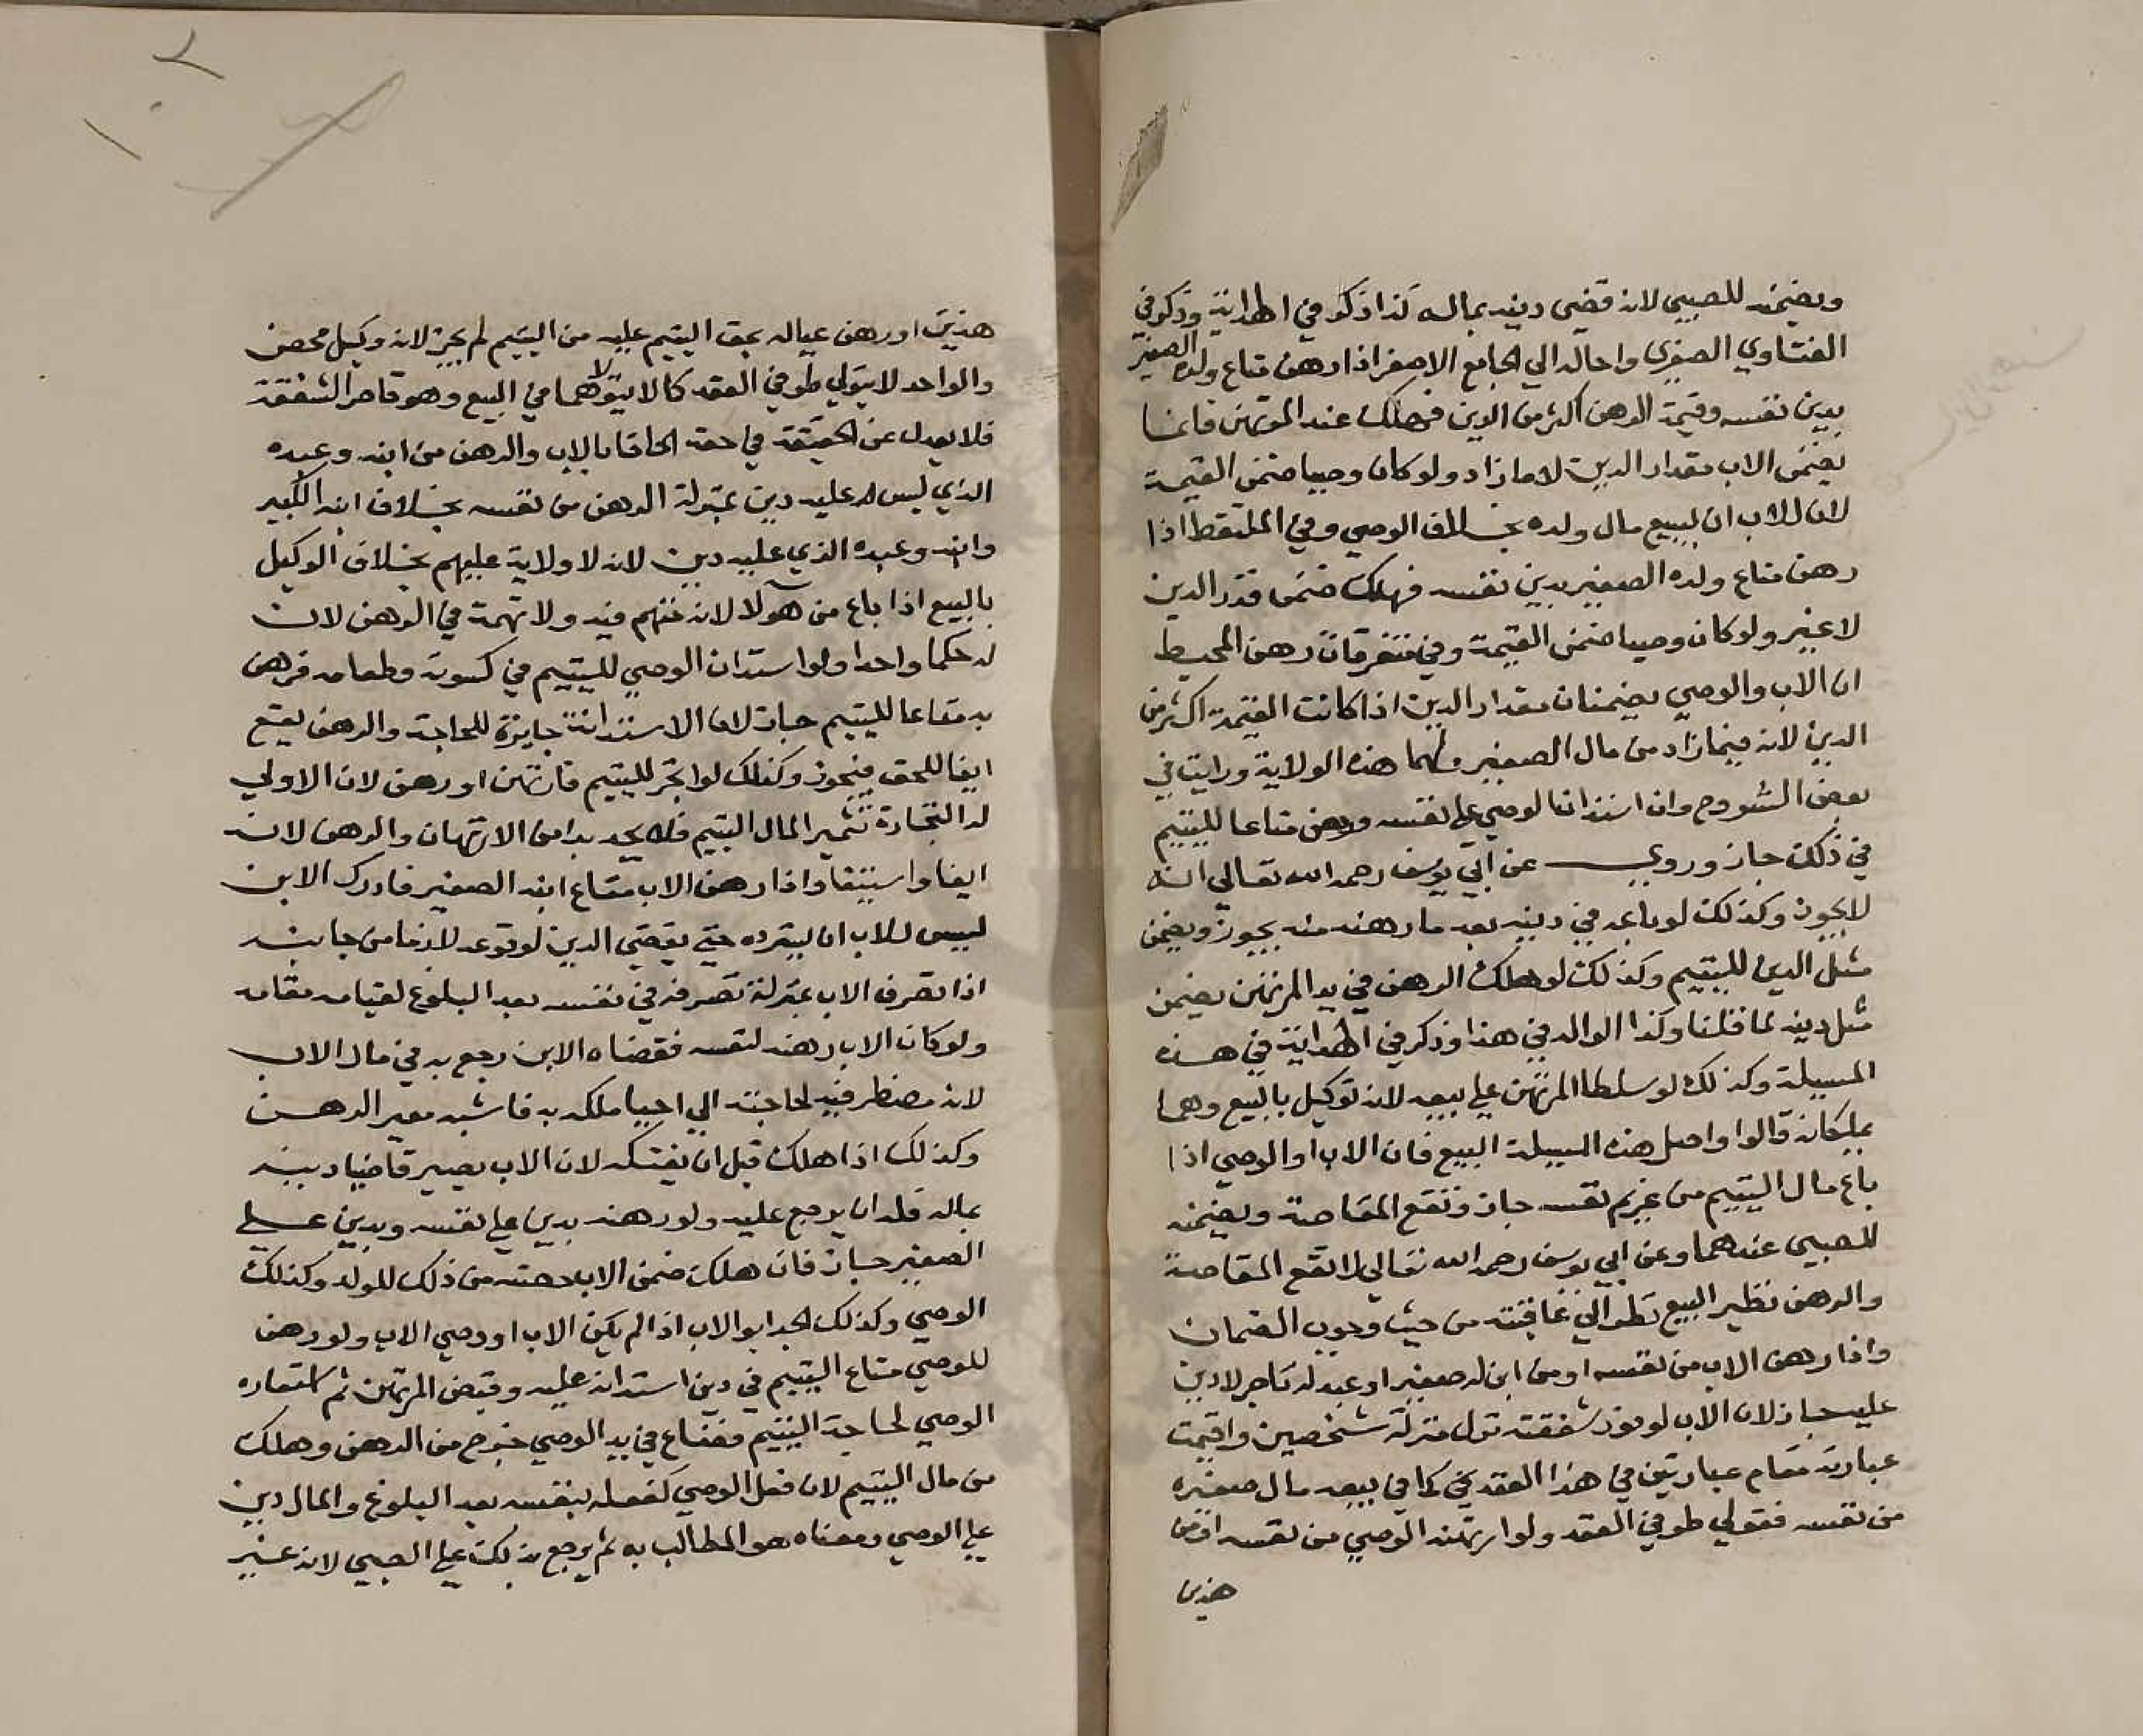 ويضمنه للصبي لانه قضى دينه بماله كذا ذكر في الهداية وذكر في
الفتاوي الصغرى واحاله الي الجامع الاصغر اذا رهن متاع ولده الصغير
بدين نفسه وقيمة الرهن اكثر من الدين فهلك عند المرتهن فانما
يضمن الاب مقدار الدين لا ما زاد ولو كان وصيا ضمن القيمة
لان للاب ان يبيع مال ولده بخلاف الوصي وفي الملتقط اذا
رهن متاع ولده الصغير بدين نفسه فهلك ضمن قدر الدين
لا غير ولو كان وصيا ضمن القيمة وفي متفرقات رهن المحيط
ان الاب والوصي يضمنان مقدار الدين اذا كانت القيمة اكثر من
الدين لانه فيما زاد من مال الصغير ولهما هذه الولاية ورايت في
بعض الشروح وان استدان الوصي على نفسه ورهن متاعا لليتيم
في ذلك جاز وروي عن ابي يوسف رحمه الله تعالي انه
لا يجوز وكذلك لو باعه في دينه بعد ما رهنه منه يجوز ويضمن
مثل الدين لليتيم وكذلك لو هلك الرهن في يد المرتهن يضمن
مثل دينه لما قلنا وكذا الوالد في هذا وذكر في الهداية في هذه
المسيلة وكذلك لو سلطا المرتهن علي بيعه لانه توكيل بالبيع وهما
يملكانه قالوا واصل هذه المسيلة البيع فان الاب او الوصي اذا
باع مال اليتيم من غريم نفسه جاز وتقع المقاصة ويضمنه
للصبي عندهما وعن ابي يوسف رحمه الله تعالي لا تقع المقاصة
والرهن نظير البيع نظرا الي عاقبته من حيث وجوب الضمان
واذا رهن الاب من نفسه او من ابن له صغير او عبد له تاجر لا دين
عليه جاز لان الاب لوفور شفقته نزل منزلة شخصين واقيمت
عبارته مقام عبارتين في هذا العقد كما في بيعه مال صغيره
من نفسه فتولي طرفي العقد ولو ارتهنه الوصي من نفسه او من
هذين
هذين او رهن عياله بحق اليتيم عليه من اليتيم لم يجز لانه وكيل محض
والواحد لا يتولي طرفي العقد كما لا يتولاهما في البيع وهو قاصر الشفقة
فلا يعدل عن الحقيقة في حقه الحاقا بالاب والرهن من ابنه وعبده
الذي ليس له عليه دين بمنزلة الرهن من نفسه بخلاف ابنه الكبير
وابيه وعبده الذي عليه دين لانه لا ولاية عليهم بخلاف الوكيل
بالبيع اذا باع من هولا لانه متهم فيه ولا تهمة في الرهن لان
له حكما واحدا ولو استدان الوصي لليتيم في كسوته وطعامه فرهن
به متاعا لليتيم جاز لان الاستدانة جايزة للحاجة والرهن يقع
ايفا للحق فيجوز وكذلك لو اتجر لليتيم فارتهن او رهن لان الاولي
له التجارة تثمير المال اليتيم فلا يجد بدا من الارتهان والرهن لانه
ايفا واستيفا واذا رهن الاب متاع ابنه الصغير فادرك الابن
ليس للاب ان يسترده حتي يقضي الدين لوقوعه لازما من جانبه
اذا تصرف الاب بمنزلة تصرفه في نفسه بعد البلوغ لقيامه مقامه
ولو كان الاب رهنه لنفسه فقضاه الابن رجع به في مال الاب
لانه مضطر فيه لحاجته الي احيا ملكه به فاشبه معير الرهن
وكذلك اذا هلك قبل ان يفتكه لان الاب يصير قاضيا دينه
بماله فله ان يرجع عليه ولو رهنه بدين علي نفسه وبدين علي
الصغير جاز فان هلك ضمن الاب حصته من ذلك للولد وكذلك
الوصي وكذلك الجد ابو الاب اذا لم يكن الاب او وصي الاب ولو رهن
للوصي متاع اليتيم في دين استدانه عليه وقبض المرتهن ثم استعاره
الوصي لحاجة اليتيم فضاع في يد الوصي خرج من الرهن وهلك
من مال اليتيم لان فعل الوصي كفعله بنفسه بعد البلوغ والمال دين
علي الوصي ومعناه هو المطالب به ثم يرجع بذلك علي الصبي لانه غير